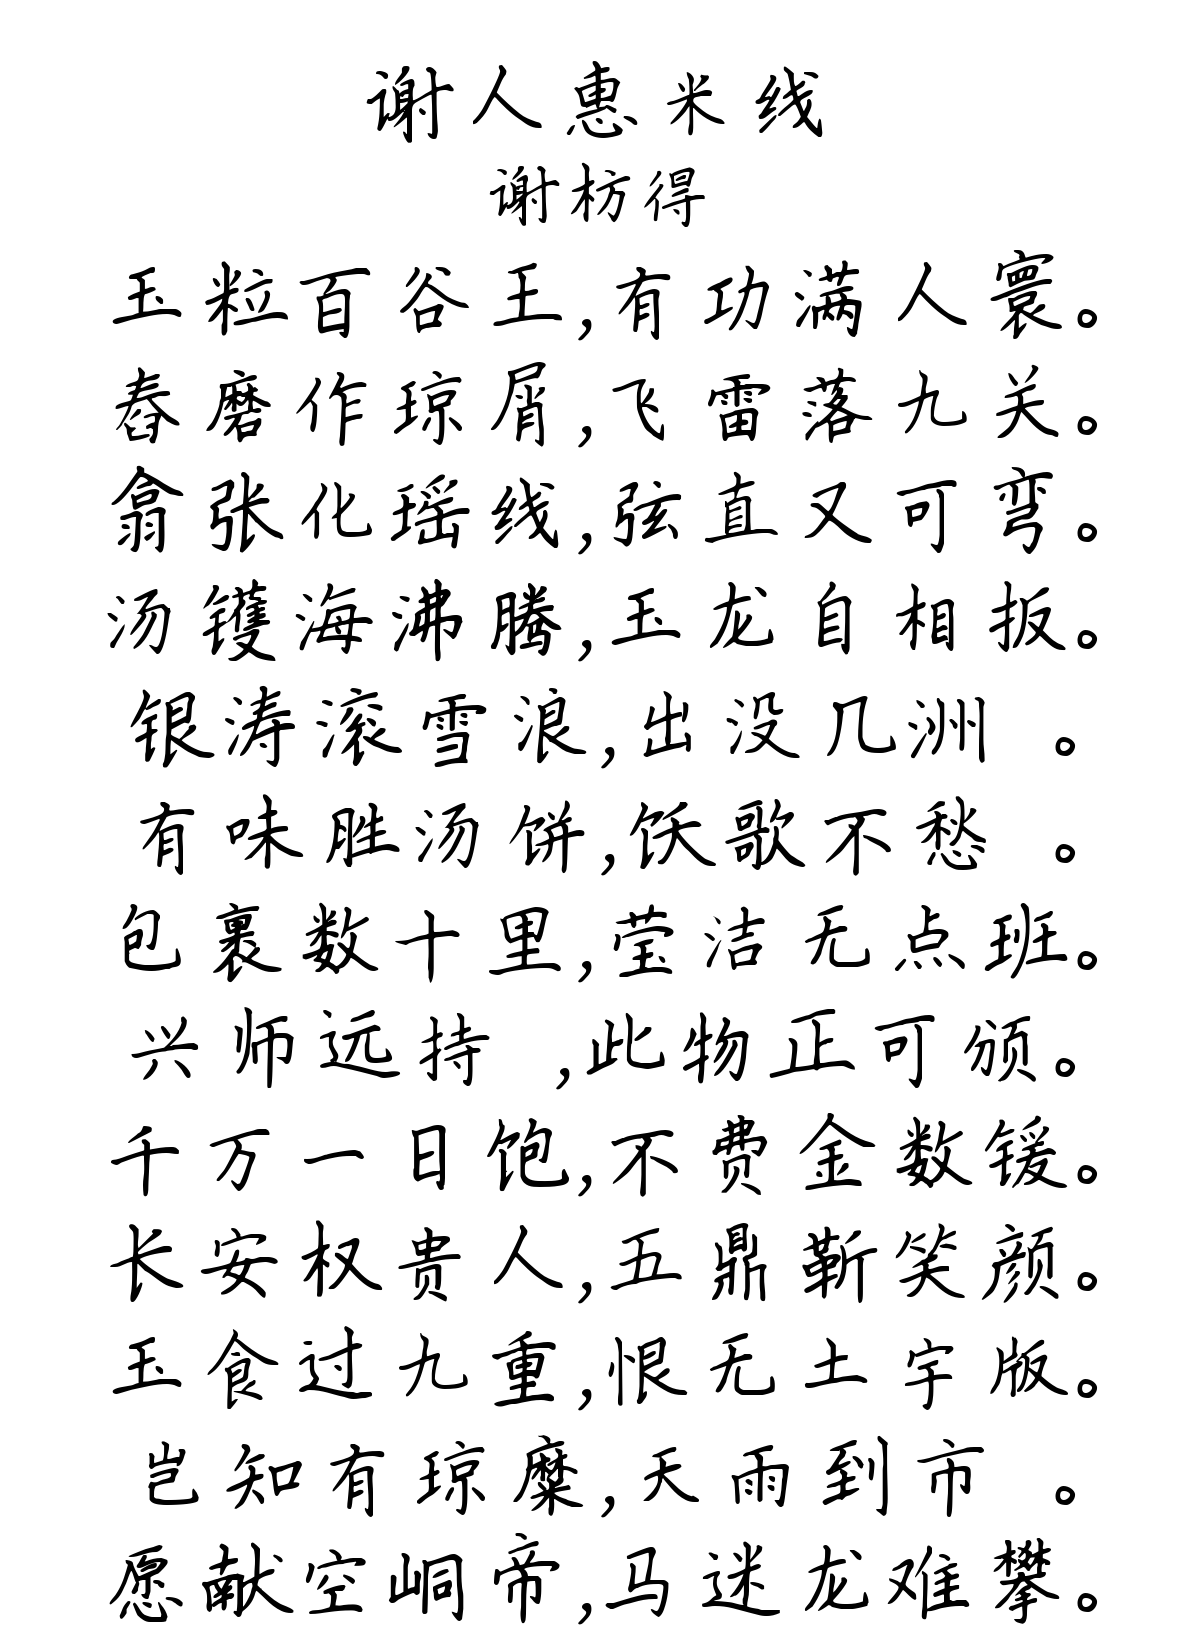 谢人惠米线
谢枋得
玉粒百谷王,有功满人寰。
舂磨作琼屑,飞雷落九关。
翕张化瑶线,弦直又可弯。
汤镬海沸腾,玉龙自相扳。
银涛滚雪浪,出没几洲 。
有味胜汤饼,饫歌不愁 。
包裹数十里,莹洁无点班。
兴师远持 ,此物正可颁。
千万一日饱,不费金数锾。
长安权贵人,五鼎靳笑颜。
玉食过九重,恨无土宇版。
岂知有琼糜,天雨到市 。
愿献空峒帝,马迷龙难攀。